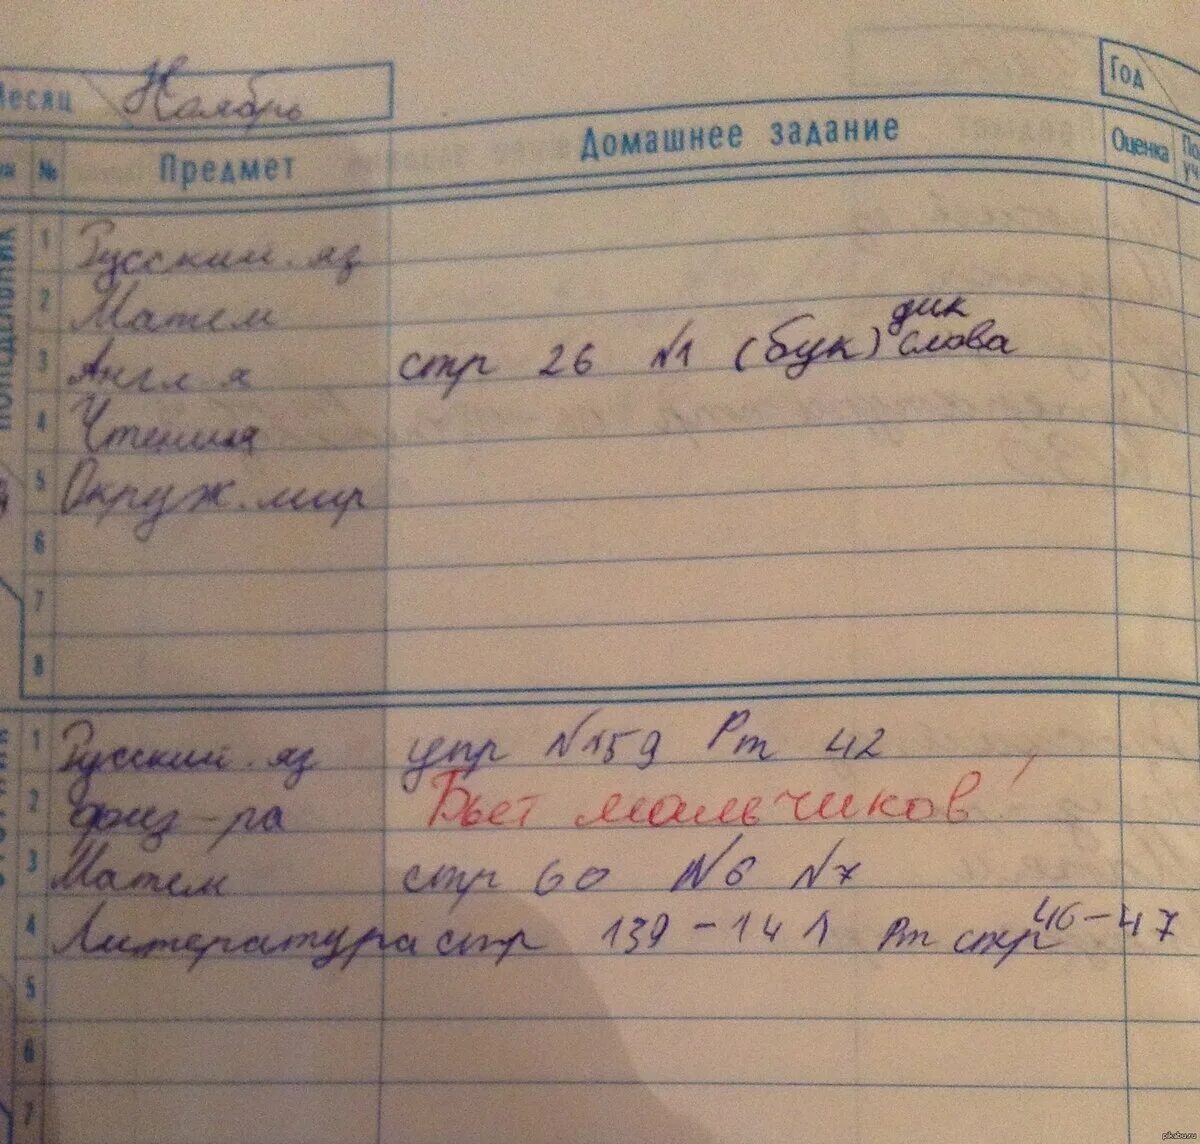 Месяц Ноябрь
Год
№ Предмет Домашнее задание Оценка
ПОНЕДЕЛЬНИК
1 Русский. яз
2 Матем
3 Англ. я стр 26 №1 (бук) дик слова
4 Чтения
5 Окруж. мир
6
7
8
1 Русский. яз упр №159 Рт 42
2 физ-ра Бьет мальчиков!
3 Матем стр 60 №6 №7
4 Литература стр 139-141 Рт стр 46-47
5
6
7
pikabu.ru